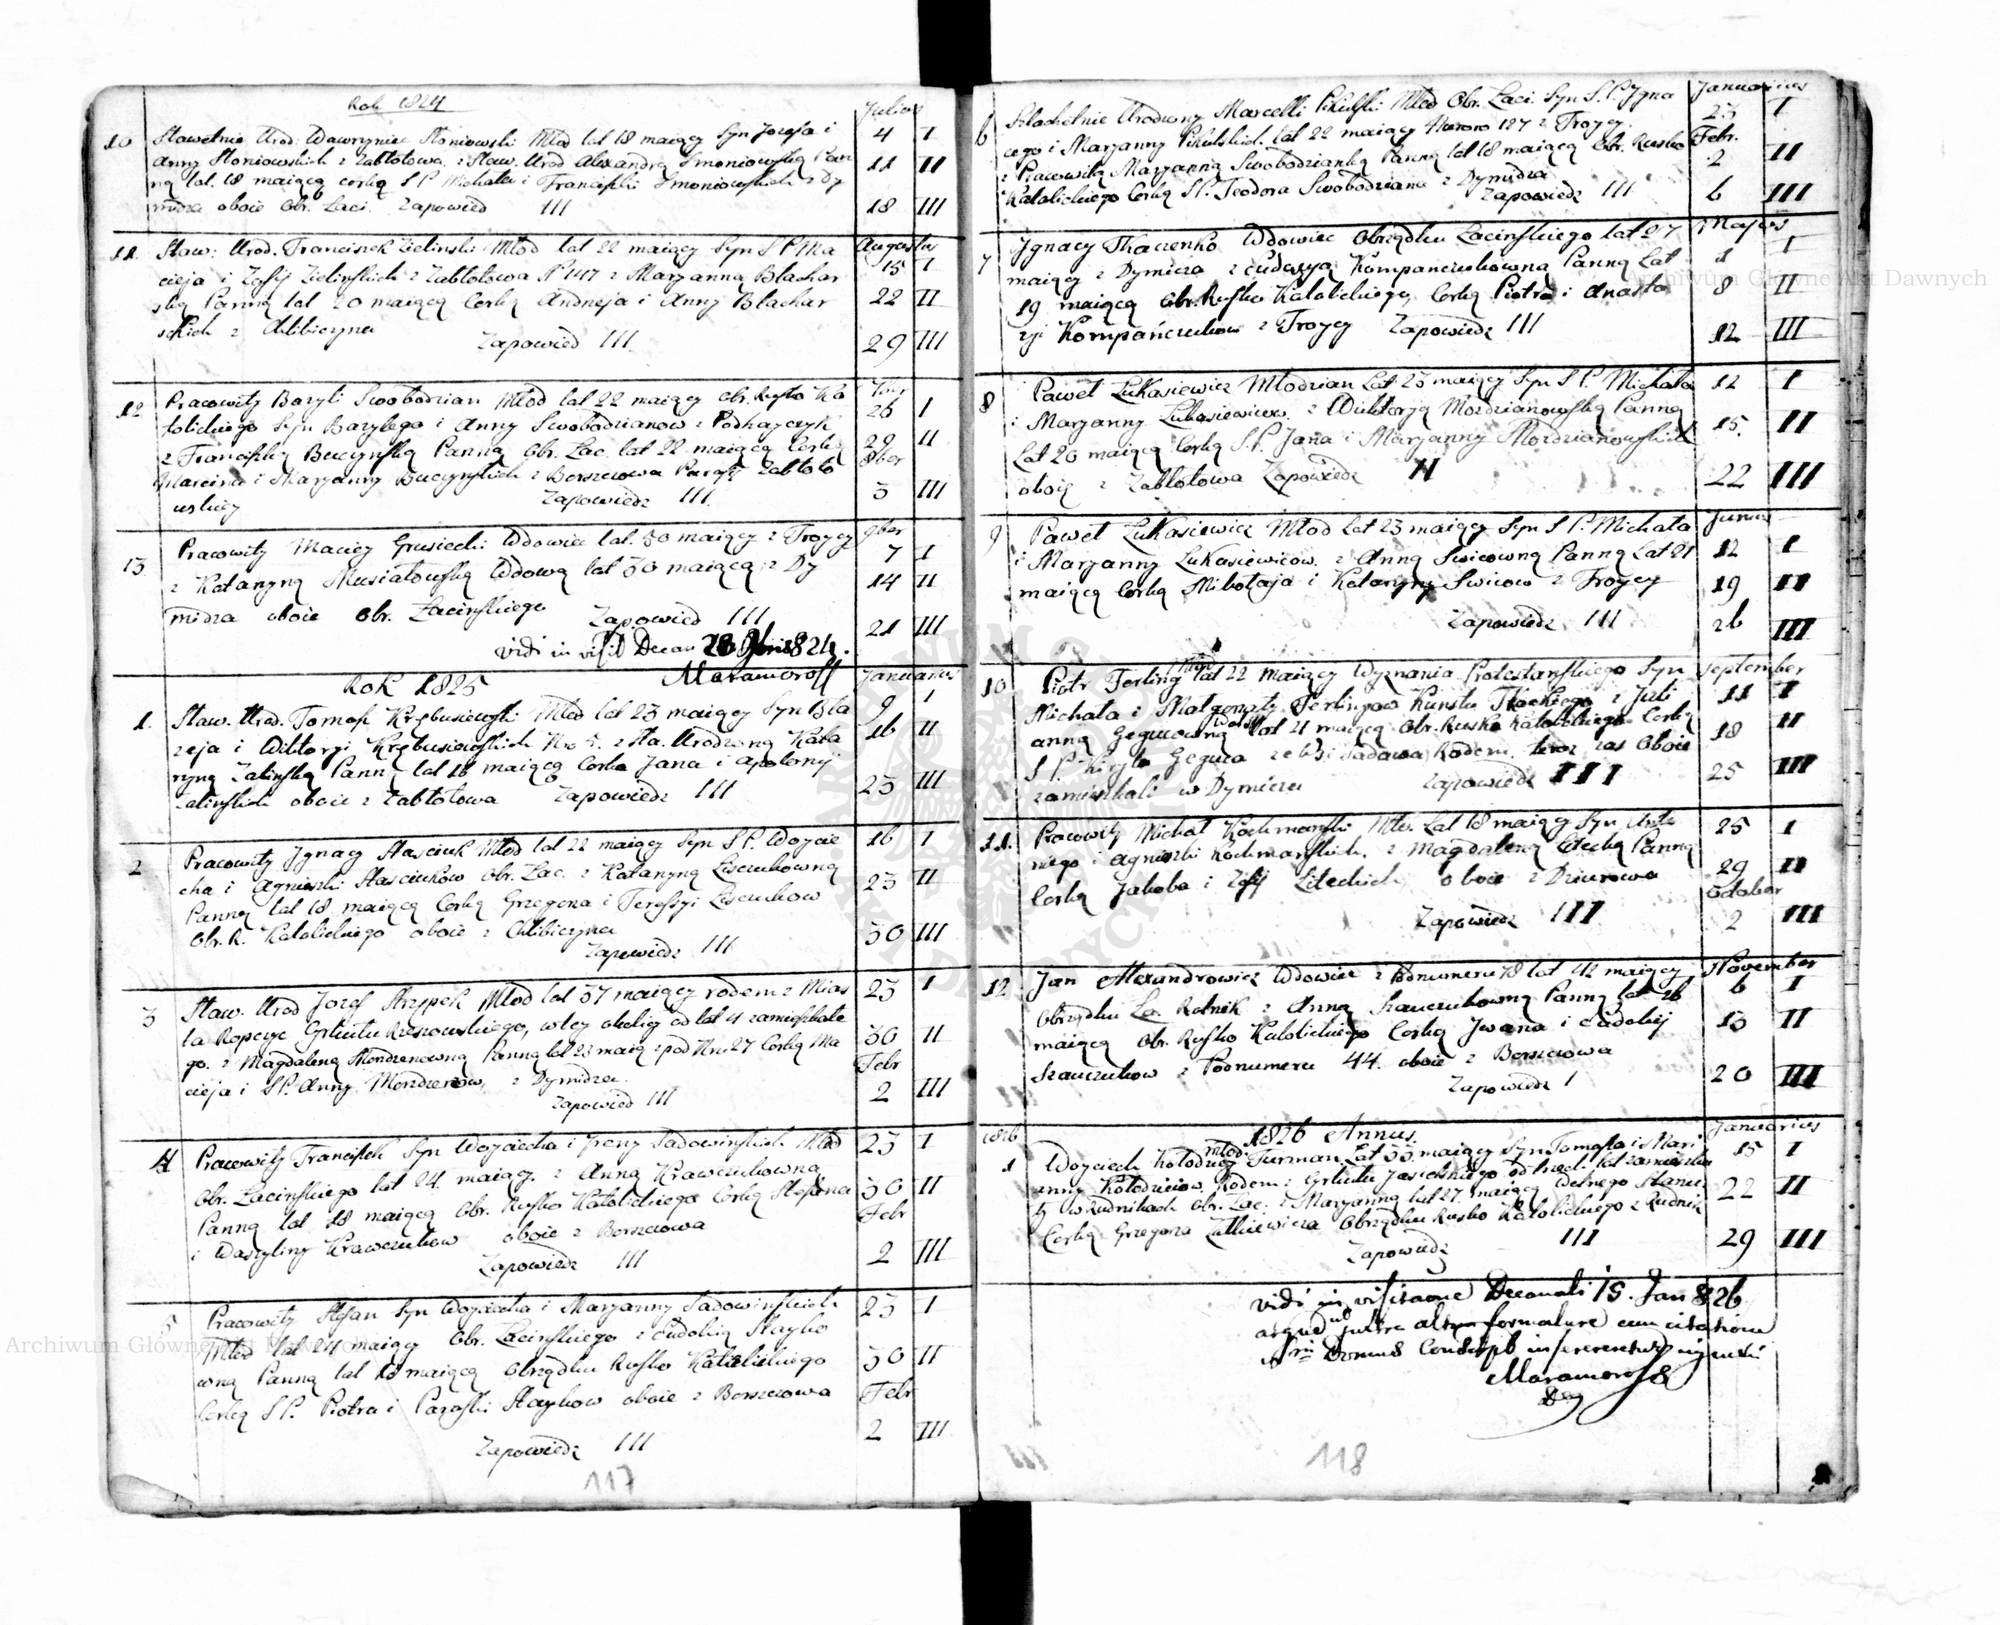 Rok 1824
Julius
10 Sławetnie Urod: Wawrzyniec Słoniowski Młod lat 18 maiący Syn Jozefa i 4 I
Anny Słoniowskich z Zabłotowa z Sław. Urod Alexandrą Smoniowską Pan 11 II
ną lat 18 maiącą corką S P Michała i Franciszki Smoniowskich z Dy
midza oboie Obr. Łaci. Zapowied III 18 III
Augustus
11 Sław: Urod. Franciszek Zieliński Młod lat 22 maiący Syn S P Ma 15 I
cieja i Zofij Zielińskich z Zabłotowa N 147 z Maryanną Blachar
ską Panną lat 20 maiącą Corką Andrzeja i Anny Blachar 22 II
skich z Chlibiczyna
Zapowied III. 29 III
7ber
12 Pracowity Bazyli Swobodzian Młod lat 22 maiący Obr. Rusko Ka 26 I
tolickiego Syn Bazylego i Anny Swobodzianow z Podhayczyk
z Franciszką Buczyńską Panną Obr. Łac. lat 22 maiącą Corką 29 II
8ber
Marcina i Maryanny Buczyńskich z Borszczowa Parafij Zabłoto
wskiey Zapowiedz III. 3 III
9ber
13 Pracowity Maciey Grusiecki Wdowiec lat 50 maiący z Troycy 7 I
z Katarzyną Musiałowską Wdową lat 30 maiącą z Dy 14 II
midza oboie Obr. Łacińskiego Zapowied III 21 III
vidi in visit Decan 28 9bris 824.
Maramoross
Rok 1825
Januarius
1. Sław. Urod. Tomasz Krębusiewski Młod lat 23 maiący Syn Bła 9 I
zeja i Wiktoryi Krębusiewskich Nro 5. z Sła. Urodzoną Kata 16 II
rzyną Zalińską Panną lat 16 maiącą Corką Jana i Apolonij
Zalińskich oboie z Zabłotowa Zapowiedz III 23 III
2 Pracowity Ignacy Stasciuk Młod lat 22 maiący Syn S P. Woycie 16 I
cha i Agnieszki Stasciukow Obr. Łac. z Katarzyną Lisciukowną 23 II
Panną lat 18 maiącą Corką Grzegorza i Terefzyi Lisciukow
Obr. R. Katolickiego oboie z Chlibiczyna 30 III
Zapowiedz III
3 Sław. Urod Jozef Strzypek Młod lat 37 maiący rodem z Mias 23 I
ta Ropczyc Cyrkułu Rzeszowskiego, w tey okolicy od lat 4 zamieszkałe
go. z Magdaleną Mondzenowną Panną lat 23 maią z pod Nru 27 Corką Ma 30 II
Febr
cieja i S P. Anny Mondzenow, z Dymidza.
Zapowied III 2 III
4 Pracowity Franciszek Syn Woyciecha i Ireny Sadowińskich Młod 23 I
Obr. Łacińskiego lat 24 maiący. z Anną Krawczukowną 30 II
Panną lat 18 maiącą Obr. Rusko Katolickiego Corką Stefana Febr
i Wasyliny Krawczukow oboie z Borszczowa
Zapowiedz III 2 III
5 Pracowity Stefan Syn Woyciecha i Maryanny Sadowińskich 23 I
Młod lat 24 maiący Obr. Łacińskiego z Eudokią Stayko
wną Panną lat 18 maiącą Obrządku Rusko Katolickiego 30 II
Febr
Corką S P. Piotra i Paraski Staykow oboie z Borszczowa
2 III
Zapowiedz III
117
Januarius
6 Szlachetnie Urodzony Marcelli Pikulski Młod Obr. Łaci. Syn S. P. Igna 23 I
cego i Maryanny Pikulskich lat 22 maiący Numero 127 z Troycy. Febr.
z Pracowitą Maryanną Swobodzianką Panną lat 18 maiącą Obr. Rusko 2 II
Katolickiego Corką SP. Teodora Swobodziana z Dymidza
Zapowiedz III 6 III
Majus
7 Ignacy Tkaczenko Wdowiec Obrządku Łacińskiego lat 27 1 I
maiący z Dymicza z Eudoxyą Kompanczukowną Panną Lat
19 maiącą Obr. Rusko Katolickiego, Corką Piotra i Anasta 8 II
zji Kompańczukow z Troycy Zapowiedz III 12 III
8 Paweł Łukasiewicz Młodzian Lat 23 maiący Syn S P. Michała 12 I
i Maryanny Łukasiewiczow. z Wiktoryą Mozdzianowską Panną
Lat 20 maiącą Corką S. P. Jana i Maryanny Mozdzianowskich 15. II
oboie z Zabłotowa Zapowiedz II 22 III
Junius
9 Paweł Łukasiewicz Młod Lat 23 maiący Syn S P. Michała
i Maryanny Łukasiewiczow. z Anną Swicowną Panną Lat 21 12 I
maiącą Corką Mikołaja i Katarzyny Swicow z Troycy 19 II
Zapowiedz III 26 III
September
10 Piotr Ferling Młod lat 22 maiący Wyznania Protestanskiego Syn
Michała i Małgorzaty Ferlingow Kunsztu Tkackiego z Juli 11 I
anną Geguzowną Wdo lat 21 maiącą Obr. Rusko Katolickiego Corką 18 II
S P. Kiryła Geguza ze Wsi Sadowa Rodem. teraz zas Oboie
zamieszkali w Dymiczu Zapowiedz III 25 III
11. Pracowity Michał Kochmański Mło. Lat 18 maiący Syn Anto 25 I
niego i Agnieszki Kochmańskich. z Magdaleną Litecką Panną
Corką Jakoba i Zofij Liteckich oboie z Dziurowa 29 II
October
Zapowiedz III 2 III
November
12 Jan Alexandrowicz Wdowiec z Podnumeru 18 lat 42 maiący 6 I
Obrządku Ła. Rolnik z Anną Szauczukowną Panną lat 26
maiącą Obr. Rusko Katolickiego Corką Jwana i Eudokij 13 II
Szauczukow z Podnumeru 44. oboie z Borszczowa
Zapowiedz I 20 III
1826 1826 Annus. Januarius
1 Woyciech Kołodziey młod. Furman Lat 33 maiący Syn Tomasza i Mari 15 I
anny Kołodzieiow. Rodem z Cyrkułu Jasielskiego od trzech lat zamieszka
ły w Rudnikach Obr. Łac: z Maryanną lat 27. maiącą wolnego Stanu 22 II
Corką Grzegorza Zalkiewicza Obrządku Rusko Katolickiego z Rudnik
Zapowiedz III 29 III
vidi in visitaone Decanali 15. Jan 826
formature cum citatione
Maramoross
118
Archiwum Główne Akt Dawnych
Archiwum Główne Akt Dawnych